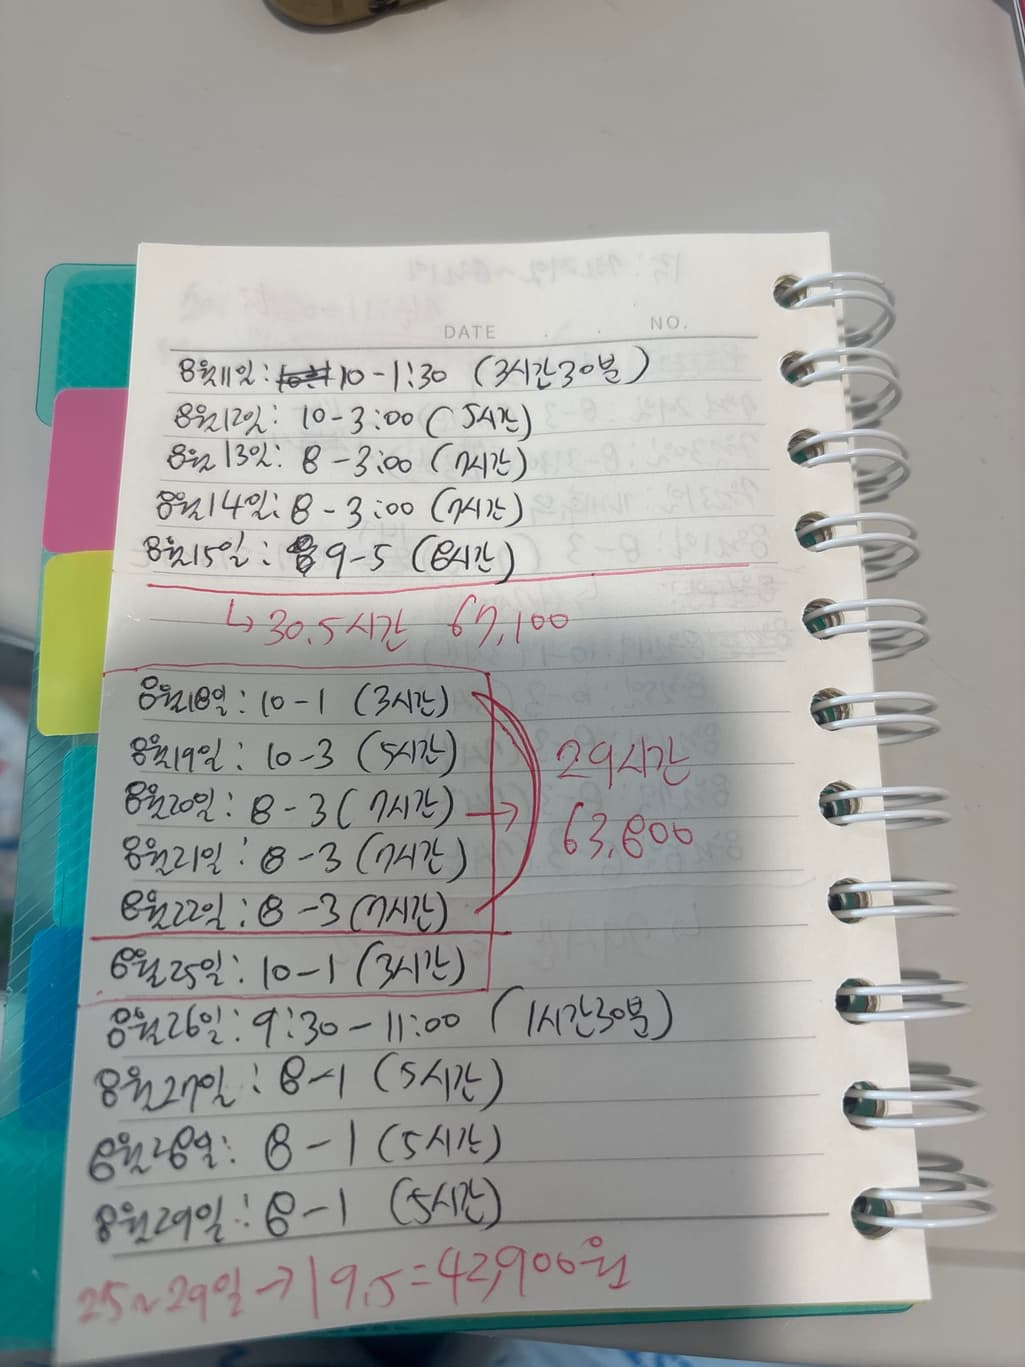 DATE . . NO.
8월11일: 10-1:30 (3시간30분)
8월12일: 10-3:00 (5시간)
8월13일: 8-3:00 (7시간)
8월14일: 8-3:00 (7시간)
8월15일: 9-5 (8시간)
↳ 30.5시간 67,100
8월18일: 10-1 (3시간)
8월19일: 10-3 (5시간)
8월20일: 8-3 (7시간) →
8월21일: 8-3 (7시간)
8월22일: 8-3 (7시간)
29시간
63,800
8월25일: 10-1 (3시간)
8월26일: 9:30-11:00 (1시간30분)
8월27일: 8-1 (5시간)
8월28일: 8-1 (5시간)
8월29일: 8-1 (5시간)
25~29일 → 19.5=42,900원